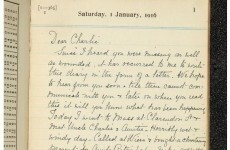 Saturday, 1 January, 1916
1
Dear Charlie
Since I heard you were missing as well
as wounded, it has occurred to me to write
this diary in the form of a letter. We hope
to hear from you soon & till then cannot com-
municate with you & later on when you read
this it will let you know what has been happening
Today I went to Mass at Clarendon St
met Uncle Charlie & Auntie. Horribly wet &
windy